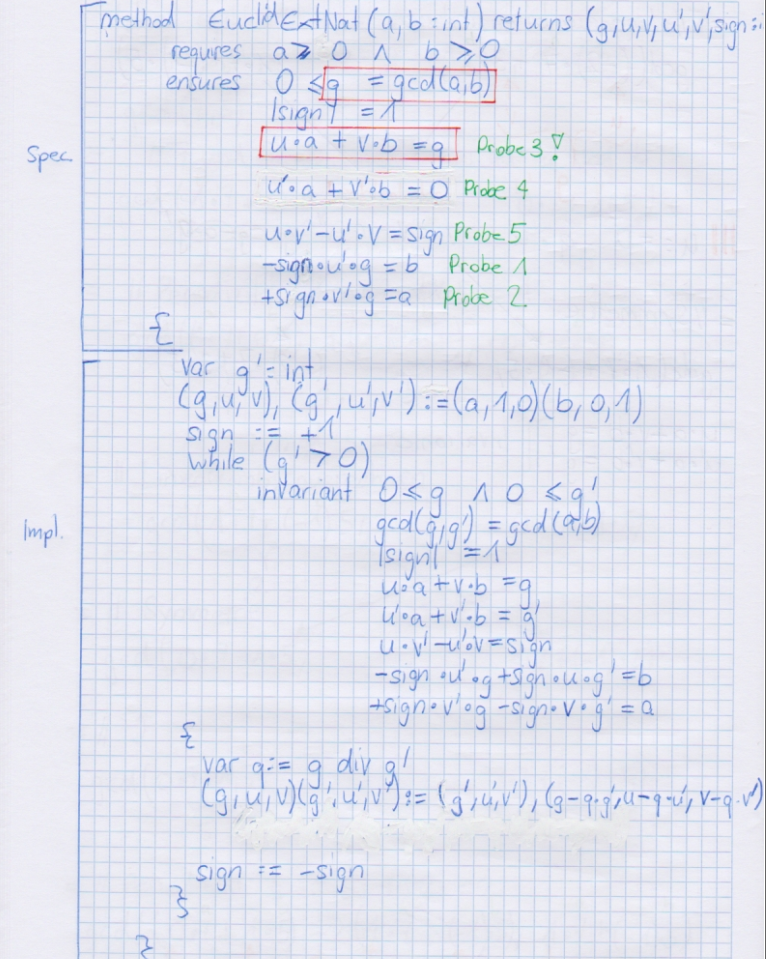 method EuclidExtNat (a, b : int) returns (g,u,v,u',v',sign:i
requres a ≥ 0 ∧ b ≥ 0
ensures 0 ≤ g = gcd(a,b)
|sign| = 1
Spec u·a + v·b = g Probe 3 !
u'·a + v'·b = 0 Probe 4
u·v' - u'·v = sign Probe 5
-sign·u'·g = b Probe 1
+sign·v'·g = a Probe 2
{
var g' = int
(g,u,v), (g',u',v') := (a,1,0)(b,0,1)
sign := +1
while (g' > 0)
invariant 0 ≤ g ∧ 0 ≤ g'
Impl. gcd(g,g') = gcd(a,b)
|sign| = 1
u·a + v·b = g
u'·a + v'·b = g'
u·v' - u'·v = sign
-sign·u'·g + sign·u·g' = b
+sign·v'·g - sign·v·g' = a
{
var q := g div g'
(g,u,v)(g',u',v') := (g',u',v'), (g-q·g', u-q·u', v-q·v')
sign := -sign
}
}